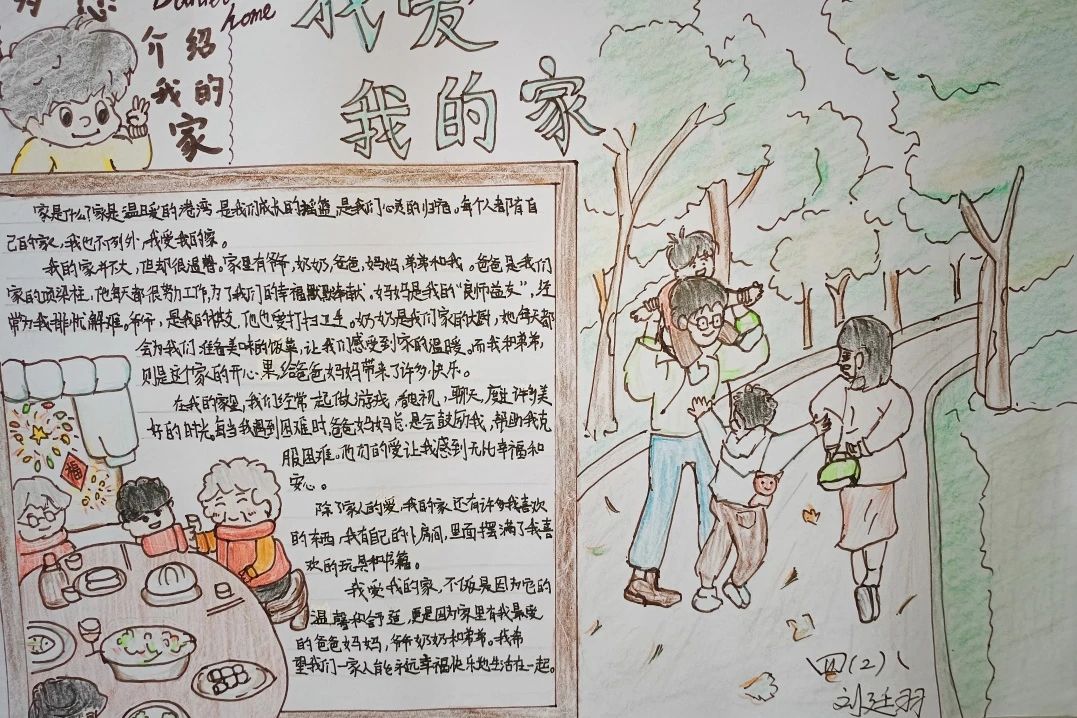 为您
Daniel
home
介绍
我的
家
我爱
我的家
家是什么?家是温暖的港湾,是我们成长的摇篮,是我们心灵的归宿。每个人都有自
己的家,我也不例外,我爱我的家。
我的家并不大,但却很温馨。家里有爷爷,奶奶,爸爸,妈妈,弟弟和我。爸爸是我们
家的顶梁柱,他每天都很努力工作,为了我们的幸福默默奉献。妈妈是我的“良师益友”,经
常为我排忧解难。爷爷,是我的,他也要打扫卫生。奶奶是我们家的大厨,她每天都
会为我们准备美味的饭菜,让我们感受到家的温暖。而我和弟弟,
则是这个家人的开心果,给爸爸妈妈带来了许多快乐。
在我的家里,我们经常一起做游戏,看电视,聊天,度过许多美
好的时光,每当我遇到困难时,爸爸妈妈总是会鼓励我,帮助我克
服困难。他们的爱让我感到无比幸福和
安心。
除了家人的爱,我的家还有许多我喜欢
的东西,我有自己的小房间,里面摆满了我喜
欢的玩具和书籍。
我爱我的家,不仅是因为它的
温馨和舒适,更是因为家里有我最爱
的爸爸妈妈,爷爷奶奶和弟弟。我希
望我们一家人能永远幸福快乐地生活在一起。
福
四(2)
刘廷羽